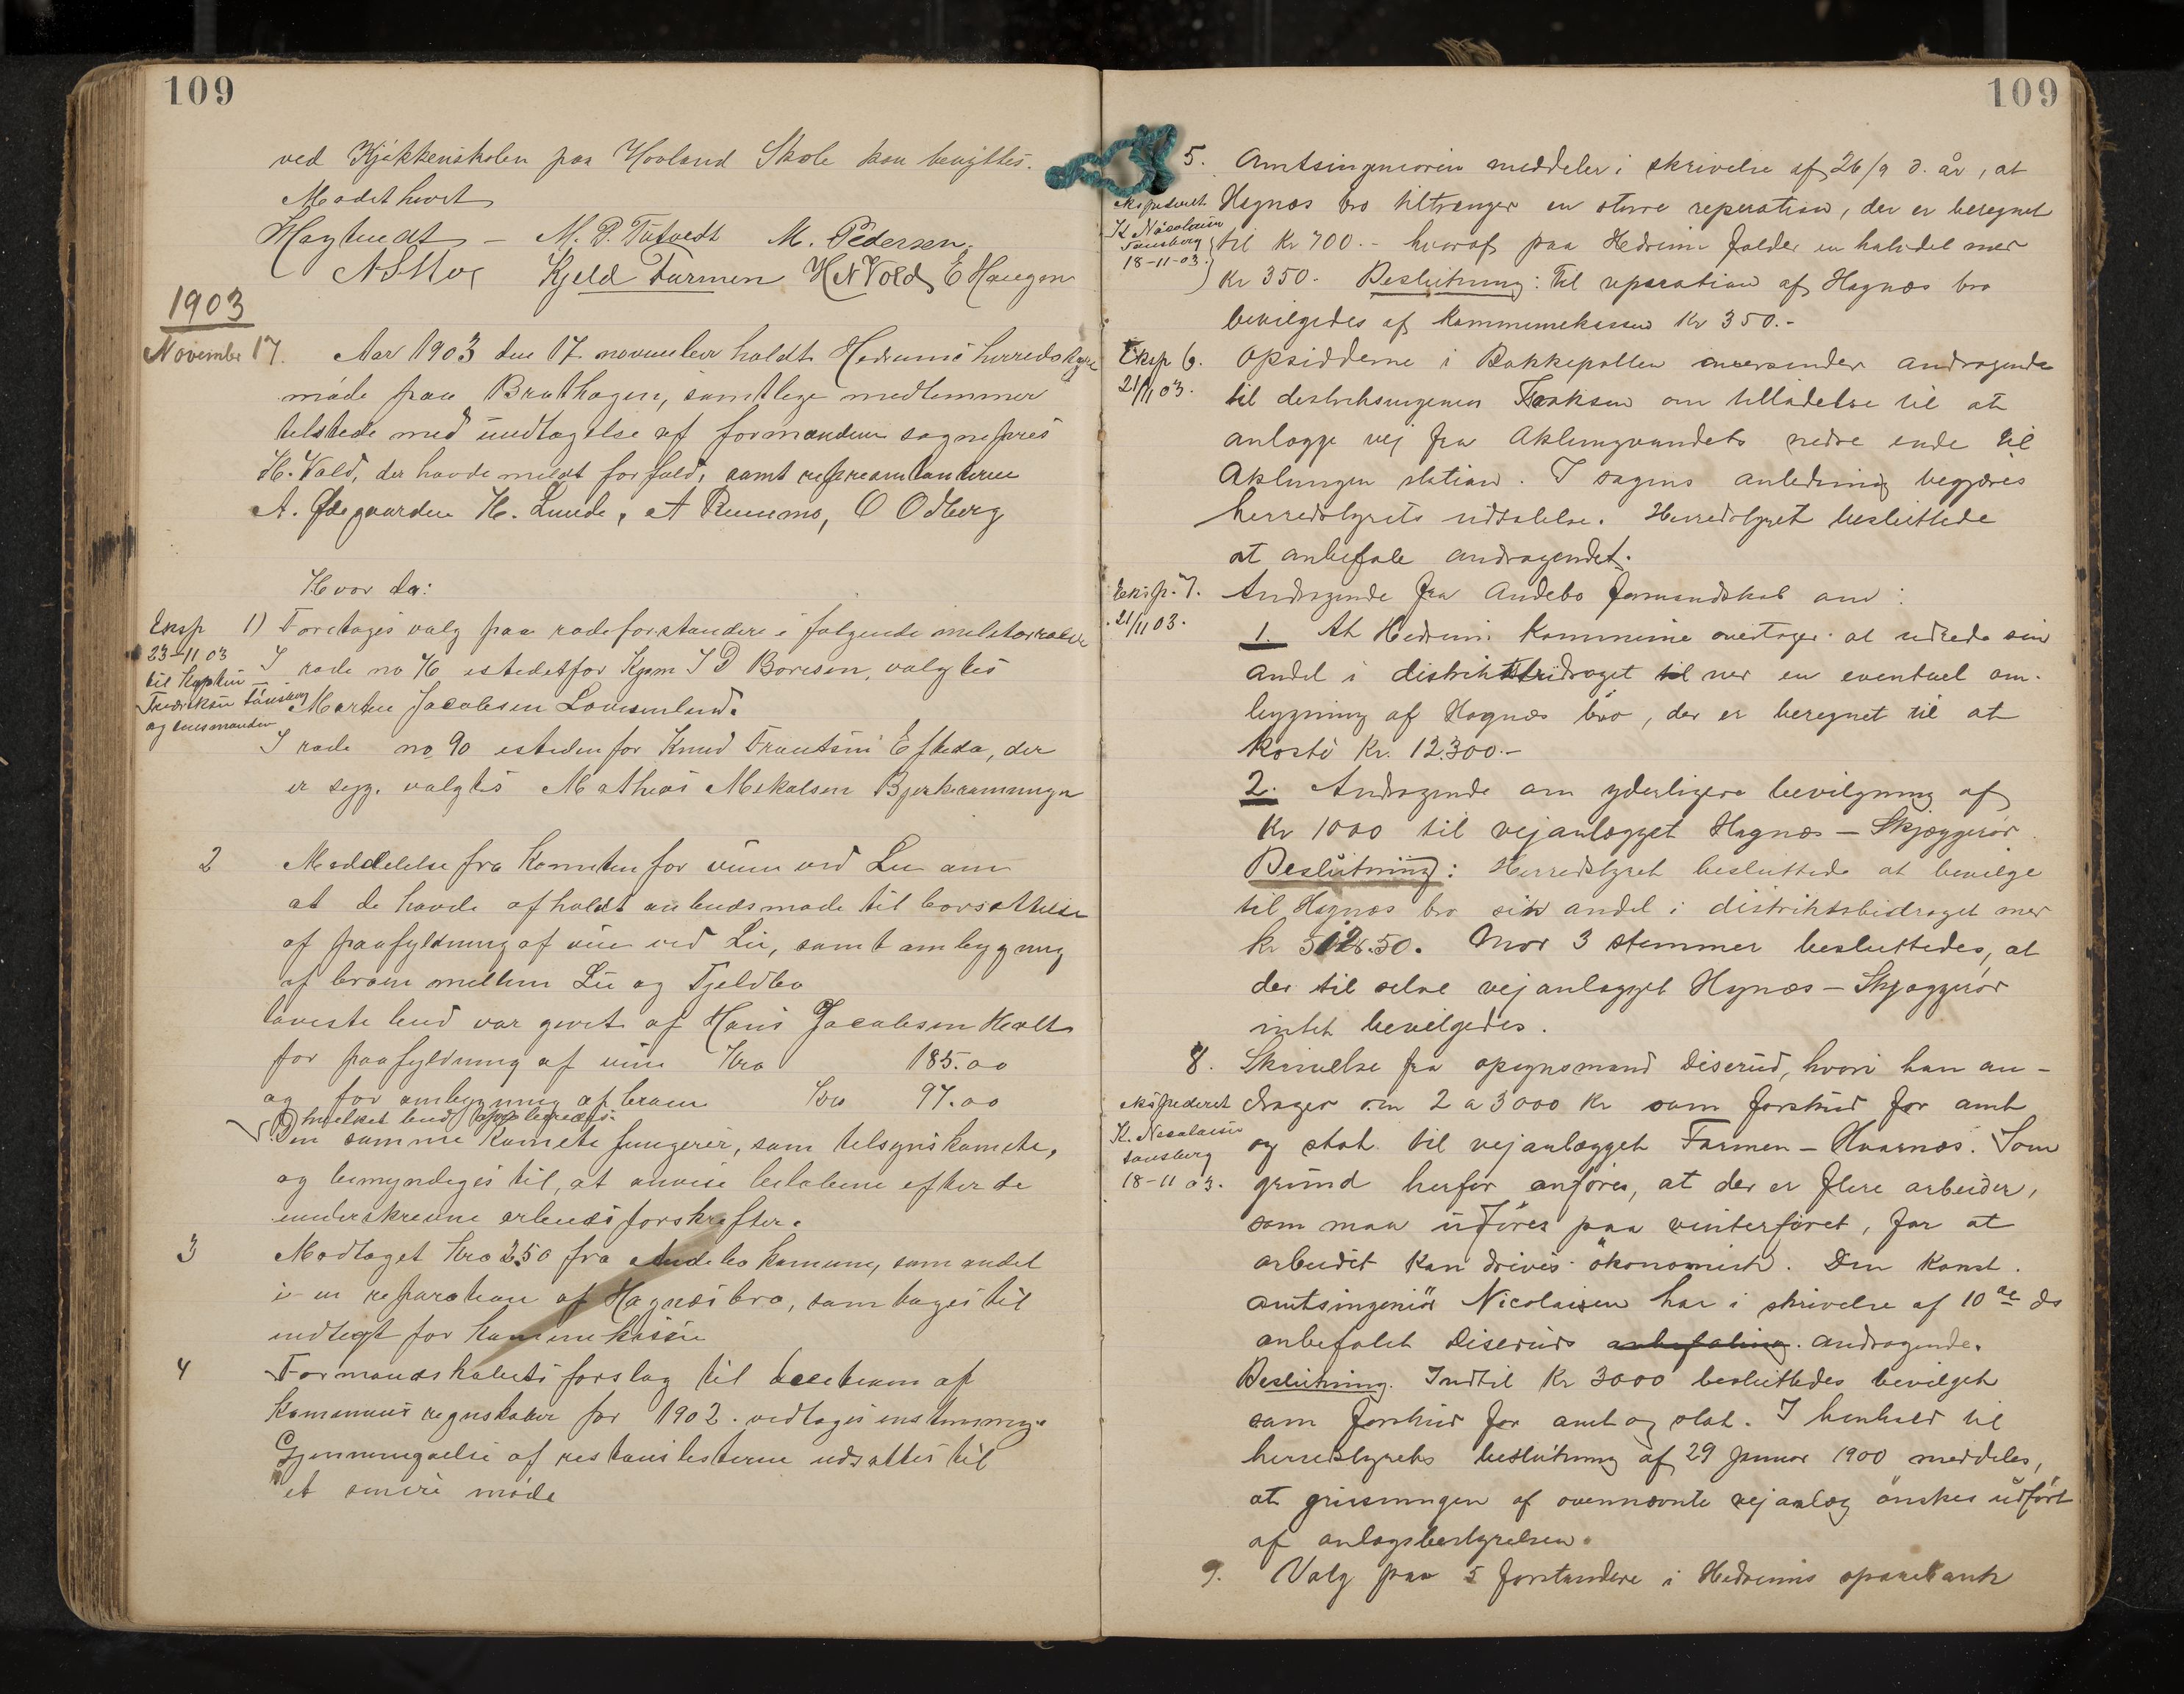 109
ved Kjøkkenskolen paa Hovland Skole kan benyttes.
Mødet hævet
M. P. Tutvedt M. Pedersen
Kjeld Farmen H N Vold E Haugen
1903
November 17. Aar 1903 den 17 november holdt Hedrums herredsstyre
møde paa Brathagen, samtlige medlemmer
tilstede med undtagelse af formanden sogneprest
H. Vold, der havde meldt forfald, samt repræsentanterne
A. Ødegaarden H. Lunde, A O Odberg
Hvor da:
Eksp
23-11 03
til Kaptein
Fredriksen Tønsberg
og lensmanden
1) Foretages valg paa rodeforstandere i følgende
I rode no istedetfor Kgsm I D Boresen, valgtes
Marten Jacobsen
I rode no 90 istedenfor Knud Frantsen Efteda, der
er syg. valgtes Matheas Mekalsen
2 Meddelelse fra Komiteen for veien ved Lie om
at de havde afholdt anbudsmøde til bortsættelse
af paafyldning af vei ved Lie, samt ombygning
af broen mellem Lie og Fjeldbo
laveste bud var givet af Hans Jacobsen Holt
for paafyldning af veien Kro 185.00
og for ombygning af broen Kro 97.00
hvilket bud approberedes.
Den samme Komite fungerer, som tilsynskomite,
og bemyndiges til, at anvise beløbene efter de
underskrevne arbeidsforskrifter.
3 Modtaget Kro 350 fra Andebo kommune, som andel
i en reparation af Hagnæs bro, som tages til
indtægt for kommunekassen
4 Formandskabets forslag til decision af
Kommunens regnskaber for 1902. vedtoges enstemmig.
Gjennemgaaelse af restanslisterne udsattes til
et senere møde
109
5. Amtsingeniøren meddeler i skrivelse af 26/9 d. år, at
ekspederet
K. Nicolaisen
Tønsberg
18-11-03.
Hagnæs bro tiltrænger en større reparation, der er beregnet
til Kr 700.- hvoraf paa Hedrum falder en halvdel med
Kr 350. Beslutning: Til reparation af Hagnæs bro
bevilgedes af Kommunekassen Kr 350.-
Eksp 6.
21/11 03.
Opsidderne i Bakkepollen oversender andragende
til distriktsingeniør om tilladelse til at
anlægge vej fra Aklungvandets nedre ende til
Aklungen station. I sagens anledning begjæres
herredstyrets udtalelse. Herredstyret besluttede
at anbefale andragendet.
Eksp. 7.
21/11 03.
Andragende fra Andebo formandskab om:
1. At Hedrum Kommune overtager at udrede sin
andel i distriktsbidraget til en eventuel om-
bygning af Hagnæs bro, der er beregnet til at
koste Kr. 12.300.-
2. Andragende om yderligere bevilgning af
Kr 1000 til vejanlægget Hagnæs – Skjæggerør.
Beslutning: Herredstyret besluttede at bevilge
til Hagnæs bro sin andel i distriktsbidraget med
Kr .50. Mod 3 stemmer besluttedes, at
der til selve vejanlægget Hagnæs – Skjæggerør
intet bevilgedes.
8. Skrivelse fra opsynsmand Diserud, hvori han an-
ekspederet
K. Nicolaisen
Tønsberg
18-11 03.
drager om 2 a 3000 Kr som forskud for amt
og stat til vejanlægget Farmen – Hvarnæs. Som
grund herfor anføres, at der er flere arbeider,
som maa udføres paa vinterføret, for at
arbeidet kan drives økonomisk. Den konst.
amtsingeniør Nicolaisen har i skrivelse af 10de ds
anbefalet Diseruds anbefaling. andragende.
Beslutning. Indtil Kr 3000 besluttedes bevilget
som forskud for amt og stat. I henhold til
herredstyrets beslutning af 29 januar 1900 meddeles,
at grusningen af ovennævnte vejanlæg ønskes udført
af anlægsbestyrelsen.
9. Valg paa 5 forstandere i Hedrums sparebank